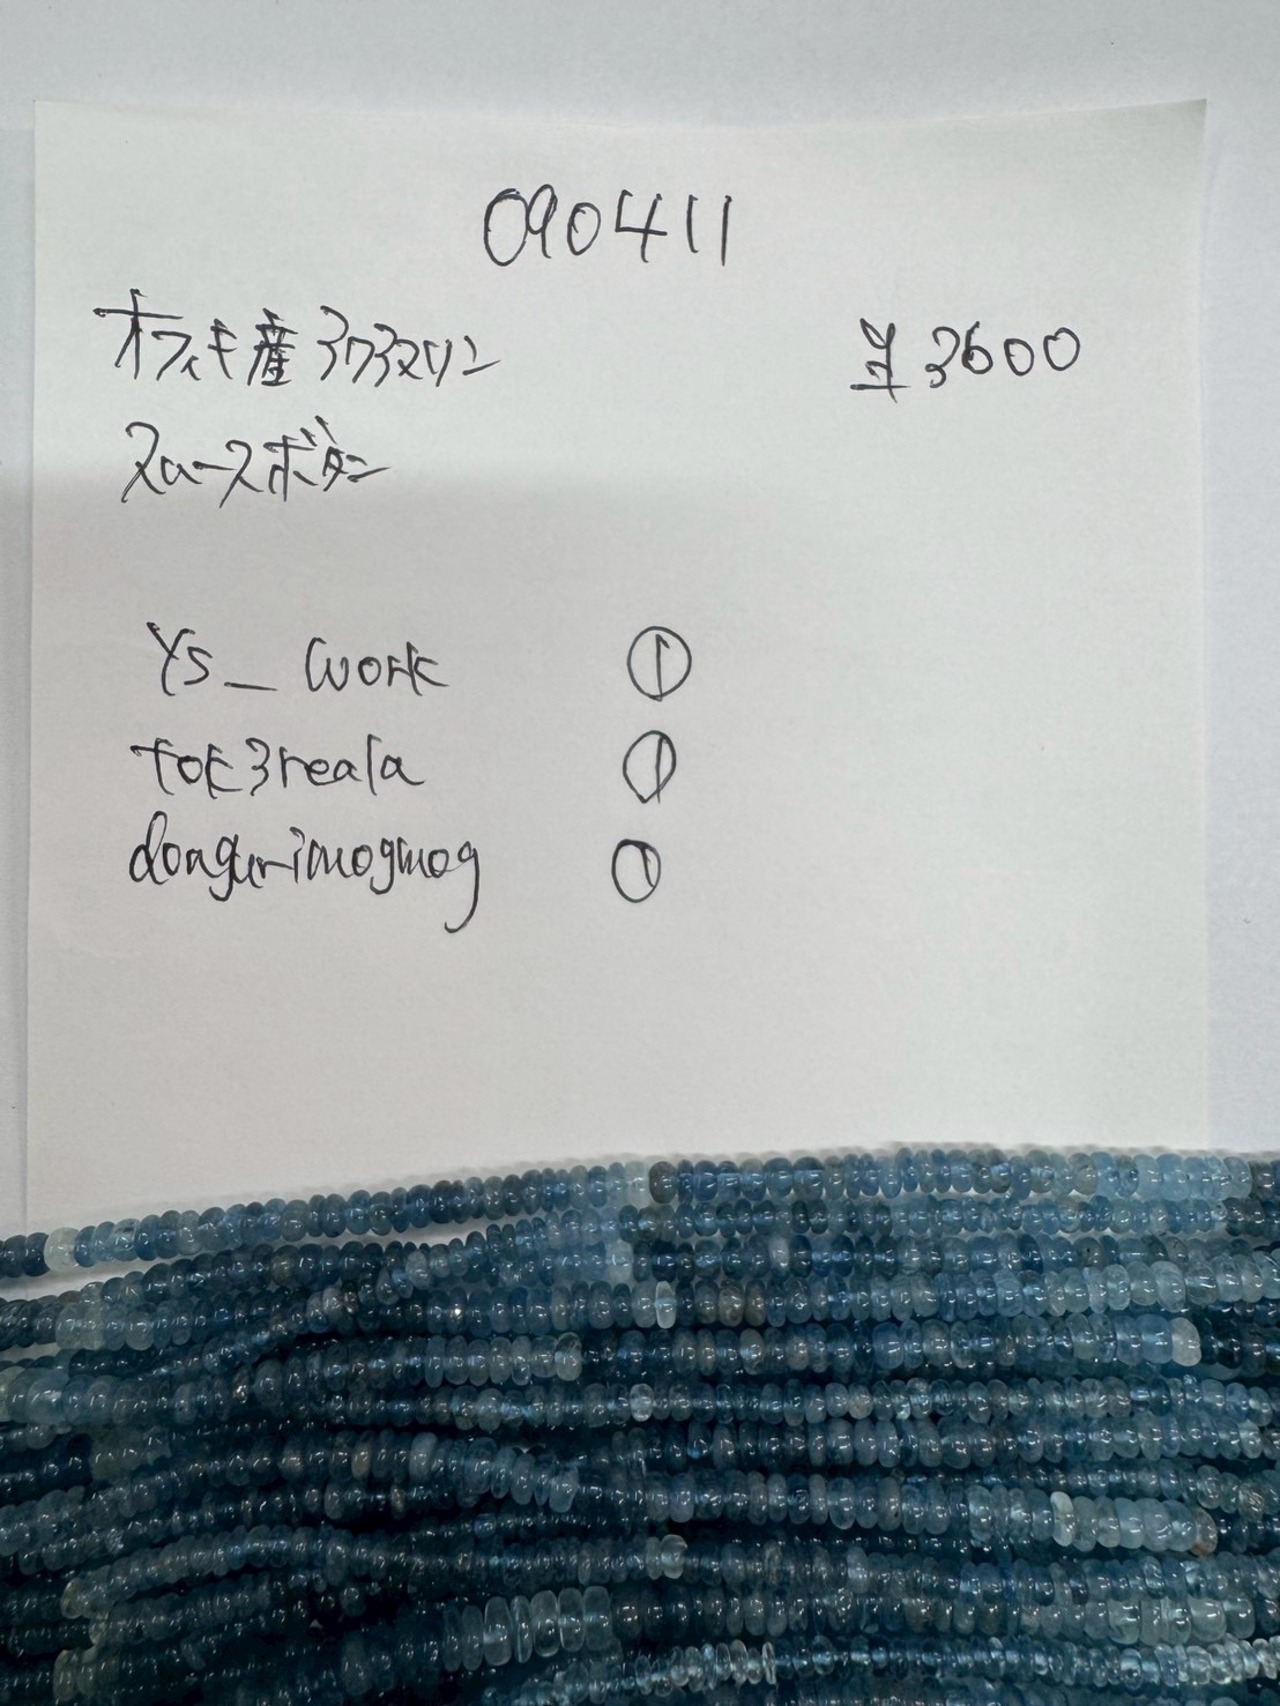 090411
オフィキ産アクアマリン ¥3600
スムースボタン
Ys_work ①
tok3reala ①
dongurimogmog ①